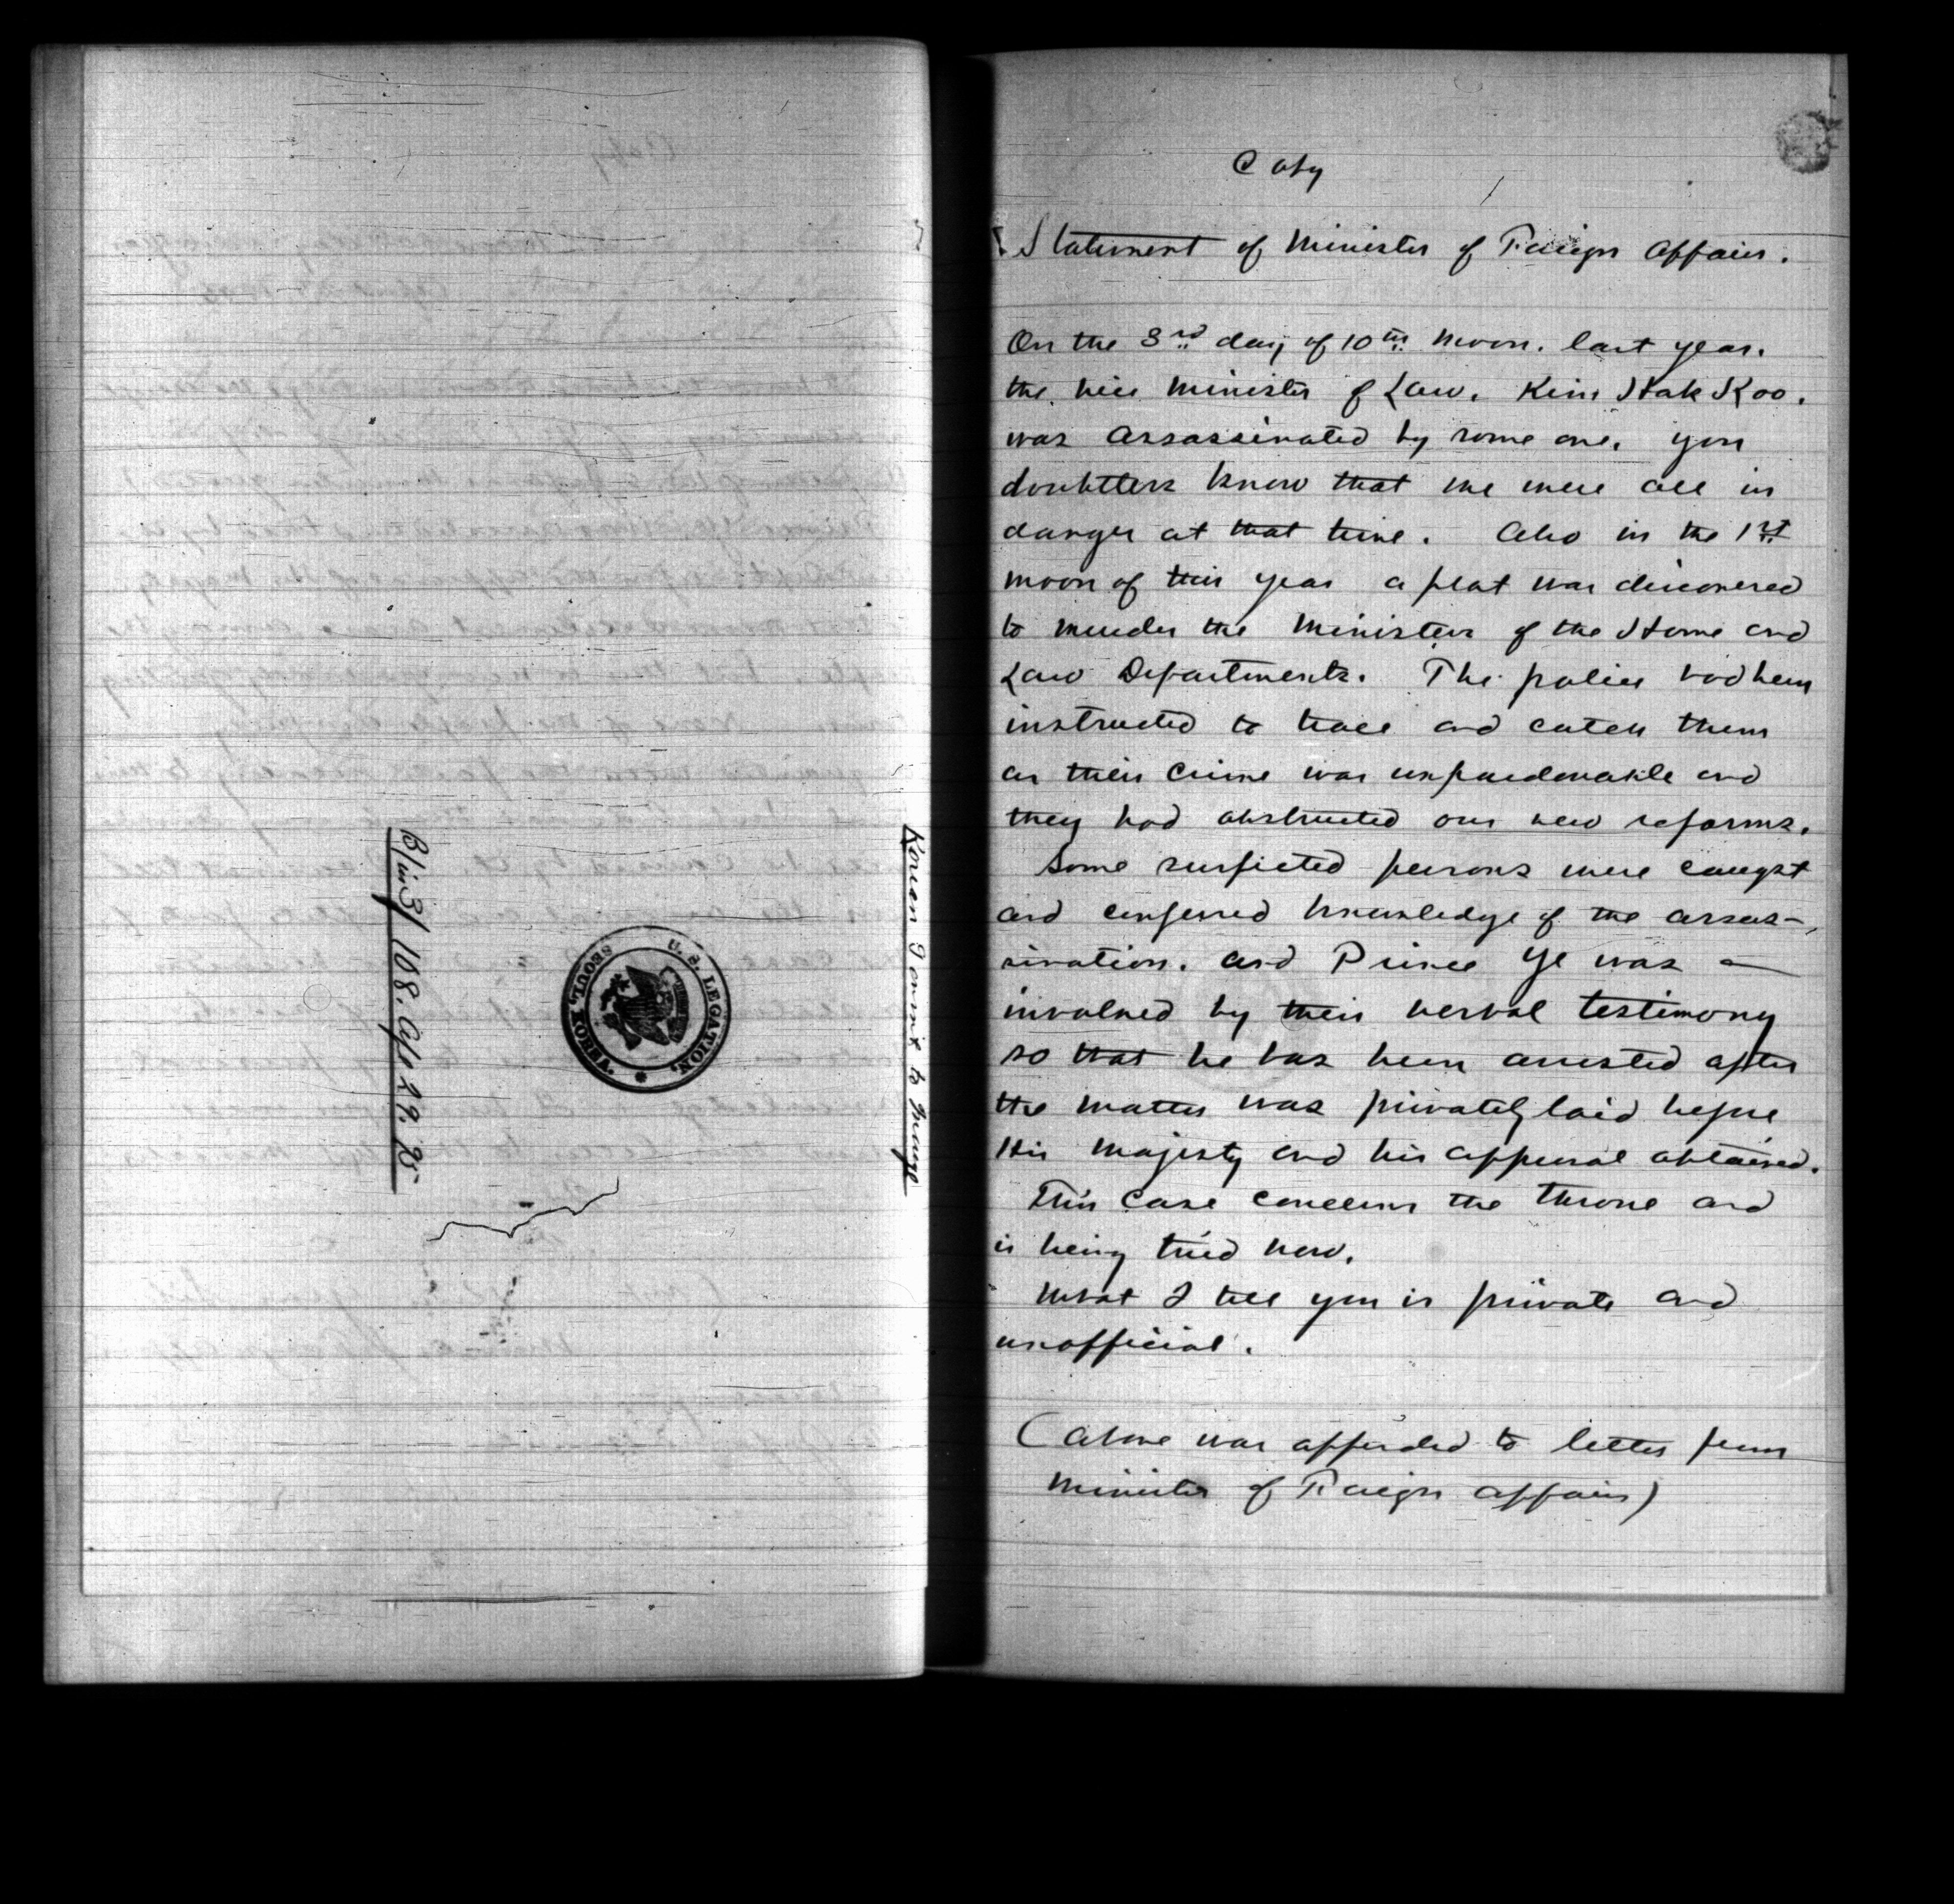 Korean Torrint to Grange
B/in 3/ 108. Ap. 29. 95
U. S. LEGATION,
SEOUL, KOREA.
Copy
Statement of Minister of Foreign Affairs.
On the 3rd day of 10th Moon. last year.
the vice Minister of Law. Kim Hak Koo.
was assassinated by some one. you
doubtless know that we were all in
danger at that time. Also in the 1st
moon of this year a plot was discovered
to murder the Ministers of the Home and
Law Departments. The police had been
instructed to trace and catch them
as their crime was unpardonable and
they had obstructed our new reforms.
Some suspicted persons were caught
and confessed knowledge of the assas-
sination. and Prince Ye was
involved by their verbal testimony
so that he has been arrested after
the matter was privately laid before
His Majesty and his approval obtained.
This case concerns the throne and
is being tried now.
What I tell you is private and
unofficial.
(Above was appended to letter from
Minister of Foreign Affairs)